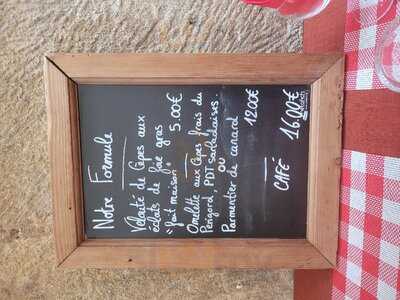 Notre Formule
Velouté de Cèpes aux
éclats de foie gras
"fait maison" 5.00€
Omelette aux Cèpes frais du
Périgord, PDT sarladaises
ou
Parmentier de canard
12.00€
CAFÉ 16.00€